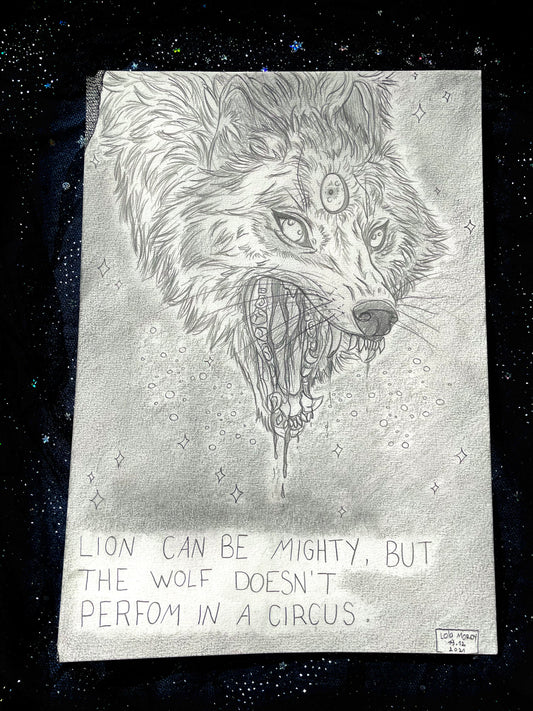 LION CAN BE MIGHTY, BUT
THE WOLF DOESN'T
PERFOM IN A CIRCUS.
2021